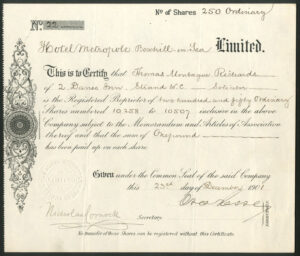 No of Shares 250 Ordinary
No. 22
Hotel Metropole Bexhill-on-Sea Limited.
This is to Certify that Thomas Montague Richards
of 2 Danes Inn Strand W.C. Solicitor
is the Registered Proprietor of two hundred and fifty Ordinary
Shares numbered 10258 to 10507 inclusive in the above
Company subject to the Memorandum and Articles of Association
thereof and that the sum of One pound
has been paid up on each share
Given under the Common Seal of the said Company
this 23rd day of December 1901
Secretary.
No transfer of these Shares can be registered without this Certificate.